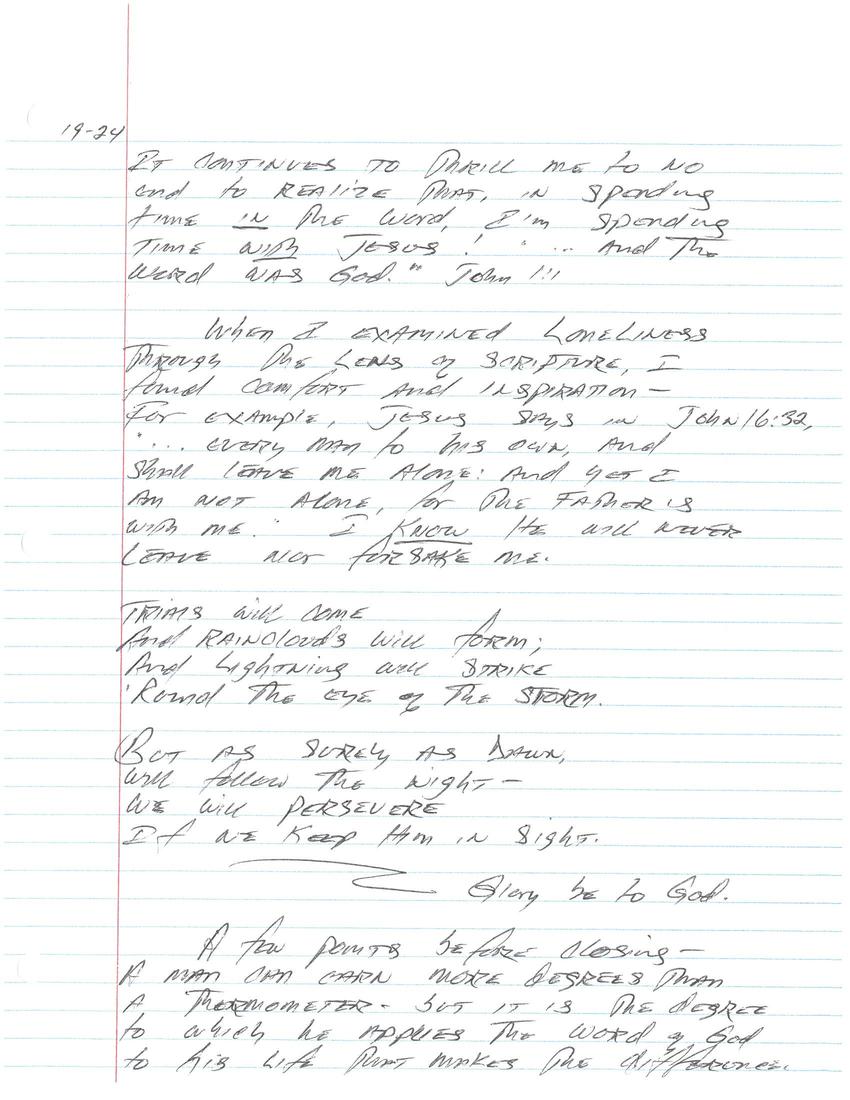 19-24
It continues to thrill me to no
end to realize that, in spending
time in the Word, I'm spending
time with Jesus! "... And the
Word was God." John 1:1
When I examined loneliness
through the lens of Scripture, I
found comfort and inspiration—
For example, Jesus says in John 16:32,
"... every man to his own, and
shall leave me alone: and yet I
am not alone, for the Father is
with me." I know He will never
leave nor forsake me.
Trials will come
And rainclouds will form;
And lightning will strike
'Round the eye of the storm.
But as surely as dawn,
will follow the night—
We will persevere
If we keep Him in sight.
Glory be to God.
A few points before closing—
A man can earn more degrees than
a thermometer - but it is the degree
to which he applies the Word of God
to his life that makes the difference.